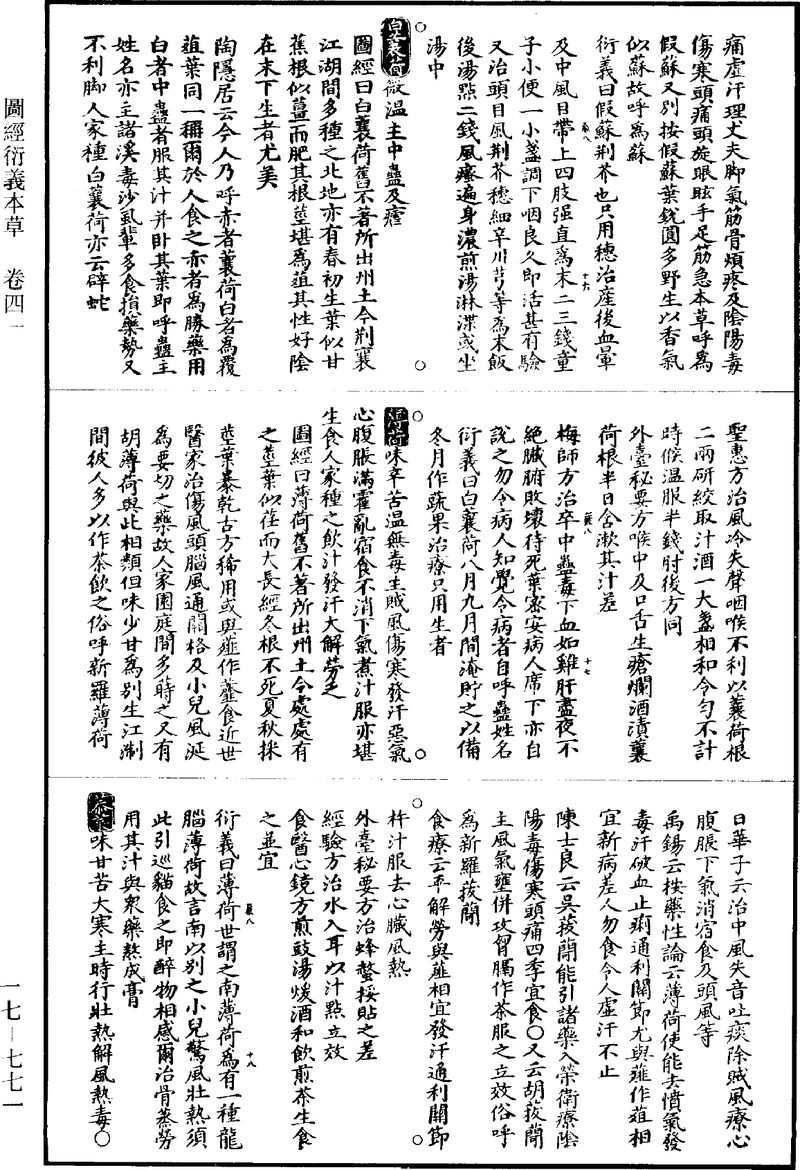 痛虛汗理丈夫脚氣筋骨煩疼及陰陽毒
傷寒頭痛頭旋眼眩手足筋急本草呼為
假蘇又別按假蘇葉銳圓多野生以香氣
似蘇故呼為蘇
衍義曰假蘇荆芥也只用穗治産後血暈
及中風目帶上四肢强直為末二三錢童
子小便一小盞調下咽良久即活甚有驗
又治頭目風荆芥穗細辛川芎等為末飯
後湯點二錢風瘙遍身濃煎湯淋渫或坐
湯中
白蘘荷微溫主中蠱及瘧
圖經曰白蘘荷舊不著所出州土今荆襄
江湖間多種之北地亦有春初生葉似甘
蕉根似薑而肥其根莖堪為葅其性好陰
在木下生者尤美
陶隱居云今人乃呼赤者蘘荷白者為覆
葅葉同一稱爾於人食之赤者為勝藥用
白者中蠱者服其汁并卧其葉即呼蠱主
姓名亦主諸溪毒沙虱輩多食損藥勢又
不利脚人家種白蘘荷亦云辟蛇
聖惠方治風冷失聲咽喉不利以蘘荷根
二兩研絞取汁酒一大盞相和令勻不計
時候溫服半錢肘後方同
外臺秘要方喉中及口舌生瘡爛酒漬蘘
荷根半日含漱其汁差
梅師方治卒中蠱毒下血如雞肝晝夜不
絕臟腑敗壞待死葉密安病人席下亦自
說之勿令病人知覺令病者自呼蠱姓名
衍義曰白蘘荷八月九月間淹貯之以備
冬月作蔬果治療只用生者
薄荷味辛苦溫無毒主賊風傷寒發汗惡氣
心腹脹滿霍亂宿食不消下氣煮汁服亦堪
生食人家種之飲汁發汗大解勞乏
圖經曰薄荷舊不著所出州土今處處有
之莖葉似荏而大長經冬根不死夏秋採
莖葉暴乾古方稀用或與薤作虀食近世
醫家治傷風頭腦風通關格及小兒風涎
為要切之藥故人家園庭間多蒔之又有
胡薄荷與此相類但味少甘為別生江淛
間彼人多以作茶飲之俗呼新羅薄荷
日華子云治中風失音吐痰除賊風療心
腹脹下氣消宿食及頭風等
禹錫云按藥性論云薄荷使能去憤氣發
毒汗破血止痢通利關節尤與薤作葅相
宜新病差人勿食令人虛汗不止
陳士良云吴菝蕳能引諸藥入榮衛療陰
陽毒傷寒頭痛四季宜食○又云胡菝蕳
主風氣壅併攻胷膈作茶服之立效俗呼
為新羅菝蕳
食療云平解勞與薤相宜發汗通利關節
杵汁服去心臟風熱
外臺秘要方治蜂螫挼貼之差
經驗方治水入耳以汁點立效
食醫心鏡方煎豉湯煖酒和飲煎茶生食
之並宜
衍義曰薄荷世謂之南薄荷為有一種龍
腦薄荷故言南以別之小兒驚風壯熱須
此引廵貓食之即醉物相感爾治骨蒸勞
用其汁與衆藥熬成膏
菾菜味甘苦大寒主時行壯熱解風熱毒○
圖經衍義本草 卷四一
一七—七七一